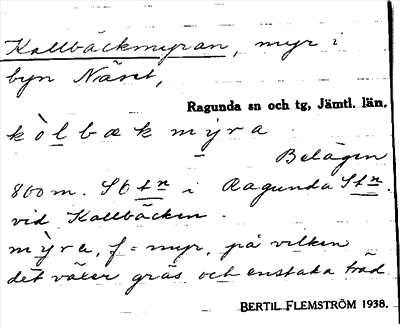 Kallbäckmyran, myr i
byn Näset,
Ragunda sn och tg, Jämtl. län.
kòlbækmýra
Belägen
800 m. SO tn i Ragunda Stn
vid Kallbäcken.
mýra, f = myr, på vilken
det växer gräs och enstaka träd.
BERTIL FLEMSTRÖM 1938.